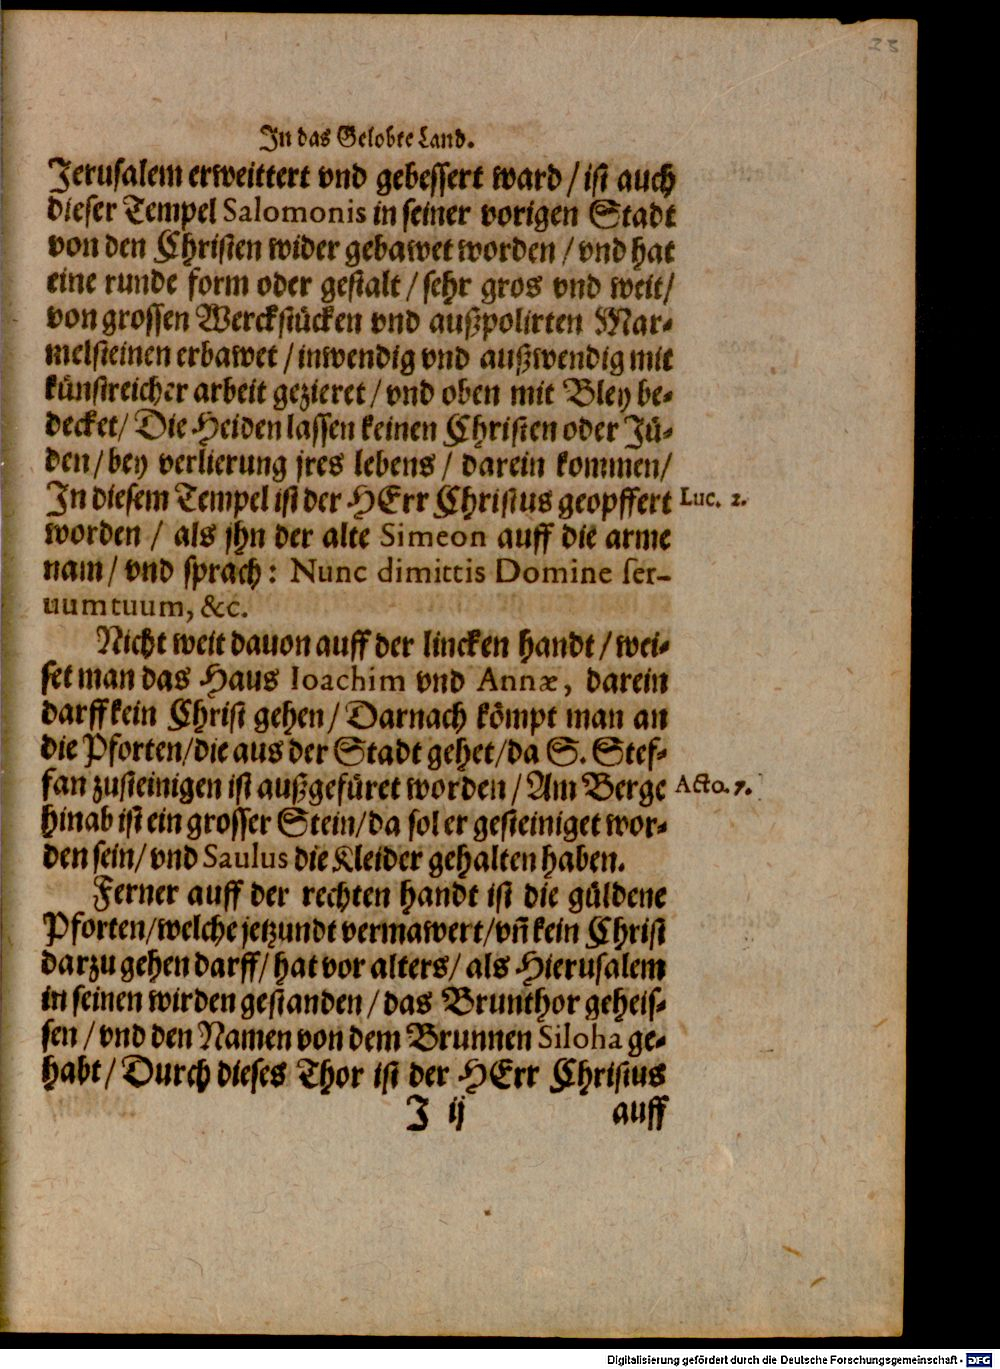 23
In das Gelobte Land.
Jerusalem erweittert vnd gebessert ward / ist auch
dieser Tempel Salomonis in seiner vorigen Stadt
von den Christen wider gebawet worden / vnd hat
eine runde form oder gestalt / sehr gros vnd weit/
von grossen Werckstücken vnd außpolirten Mar-
melsteinen erbawet / inwendig vnd außwendig mit
künstreicher arbeit gezieret / vnd oben mit Bley be-
decket/ Die Heiden lassen keinen Christen oder Jü-
den/ bey verlierung jres lebens / darein kommen/
In diesem Tempel ist der HErr Christus geopffert Luc. 2.
worden / als jhn der alte Simeon auff die arme
nam/ vnd sprach: Nunc dimittis Domine ser-
uum tuum, &c.
Nicht weit dauon auff der lincken handt / wei-
set man das Haus Ioachim vnd Annæ, darein
darff kein Christ gehen/ Darnach kömpt man an
die Pforten/die aus der Stadt gehet/da S. Stef-
fan zusteinigen ist außgefüret worden/ Am Berge Acto. 7.
hinab ist ein grosser Stein/da sol er gesteiniget wor-
den sein/ vnd Saulus die Kleider gehalten haben.
Ferner auff der rechten handt ist die güldene
Pforten/welche jetzundt vermawert/vñ kein Christ
darzu gehen darff/ hat vor alters/ als Hierusalem
in seinen wirden gestanden/ das Brunthor geheis-
sen / vnd den Namen von dem Brunnen Siloha ge-
habt/ Durch dieses Thor ist der HErr Christus
J ij auff
Digitalisierung gefördert durch die Deutsche Forschungsgemeinschaft - DFG